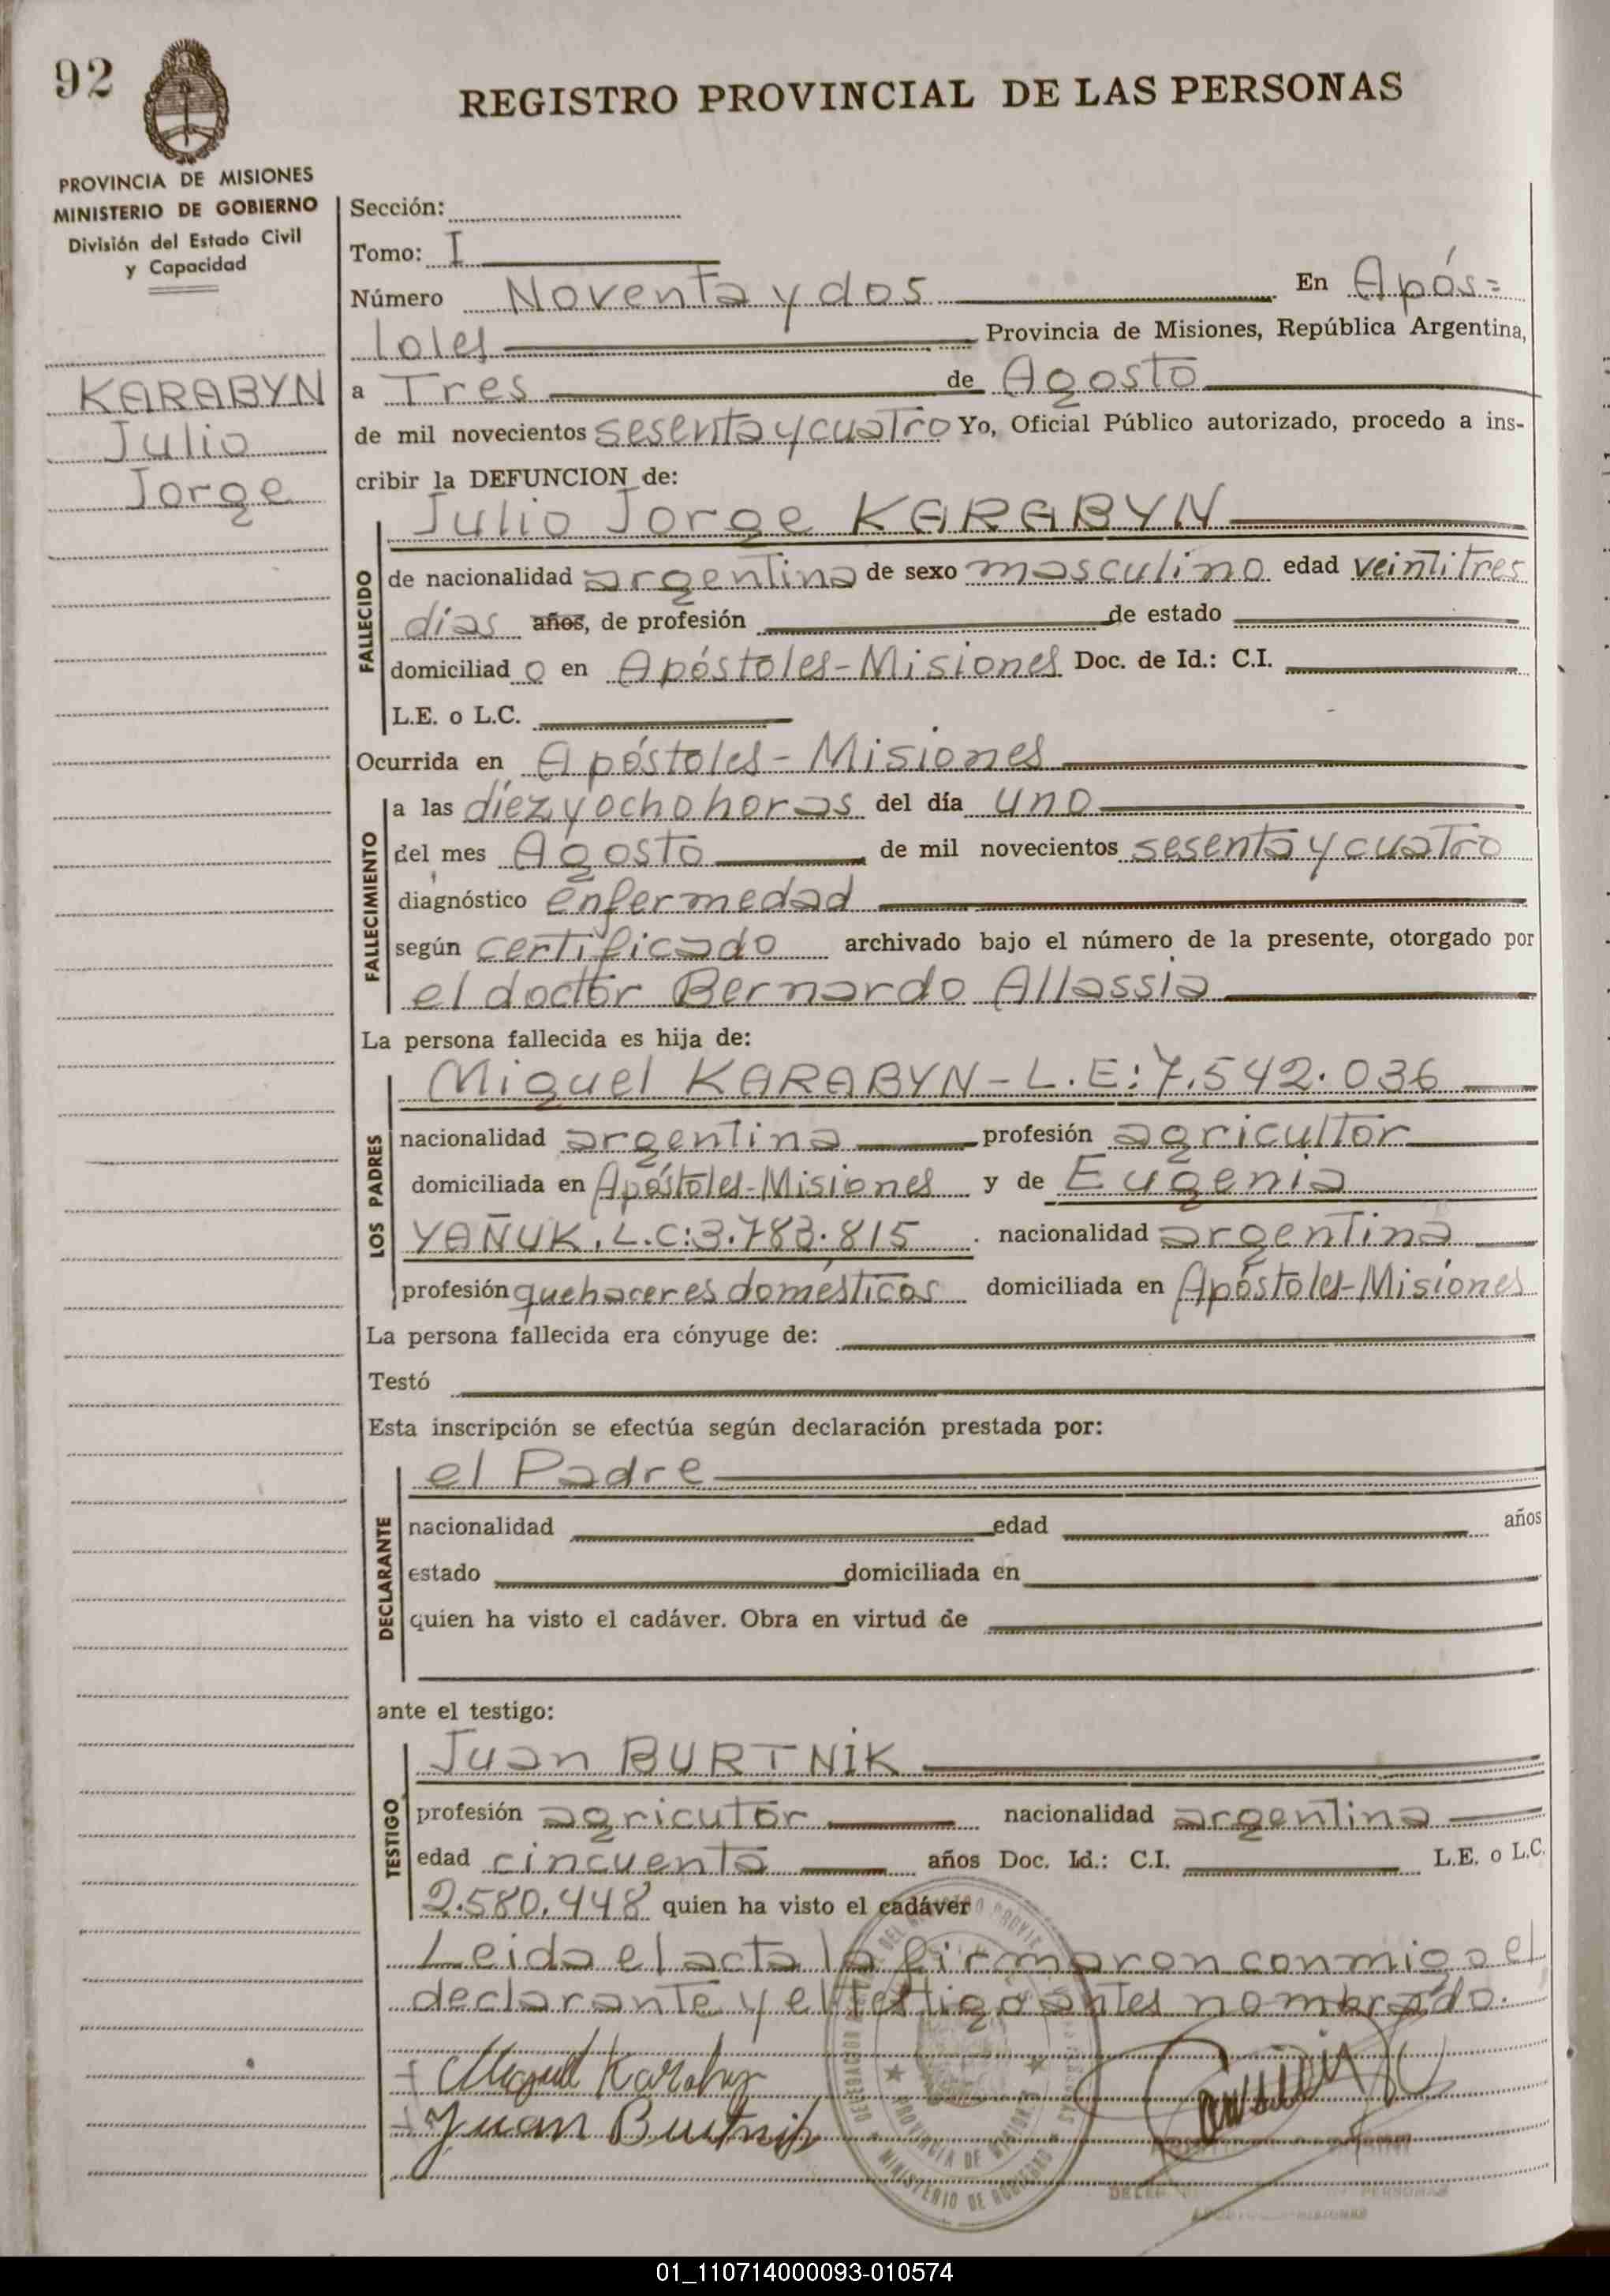 92
REGISTRO PROVINCIAL DE LAS PERSONAS
PROVINCIA DE MISIONES
MINISTERIO DE GOBIERNO
División del Estado Civil
y Capacidad
KARABYN
Julio
Jorge
Sección:
Tomo: I
Número Noventa y dos En Após=
toles Provincia de Misiones, República Argentina,
a Tres de Agosto
de mil novecientos sesenta y cuatro Yo, Oficial Público autorizado, procedo a ins-
cribir la DEFUNCION de:
Julio Jorge KARABYN
FALLECIDO
de nacionalidad argentina de sexo masculino edad veintitres
días años, de profesión de estado
domiciliad o en Apóstoles-Misiones Doc. de Id.: C.I.
L.E. o L.C.
Ocurrida en Apóstoles - Misiones
FALLECIMIENTO
a las diez y ocho horas del día uno
del mes Agosto de mil novecientos sesenta y cuatro
diagnóstico enfermedad
según certificado archivado bajo el número de la presente, otorgado por
el doctor Bernardo Allassia
La persona fallecida es hija de:
LOS PADRES
Miguel KARABYN - L.E: 7.542.036
nacionalidad argentina profesión agricultor
domiciliada en Apóstoles-Misiones y de Eugenia
YAÑUK. L.C: 3.783.815 nacionalidad argentina
profesión quehaceres domésticos domiciliada en Apóstoles-Misiones
La persona fallecida era cónyuge de:
Testó
Esta inscripción se efectúa según declaración prestada por:
DECLARANTE
el Padre
nacionalidad edad años
estado domiciliada en
quien ha visto el cadáver. Obra en virtud de
ante el testigo:
TESTIGO
Juan BURTNIK
profesión agricutor nacionalidad argentina
edad cincuenta años Doc. Id.: C.I. L.E. o L.C.
2.580.448 quien ha visto el cadáver
Leida el acta la firmaron conmigo el
declarante y el testigo antes nombrado.
+ Miguel Karabyn
+ Juan Burtnik
PROVINCIA DE MISIONES
MINISTERIO DE GOBIERNO
01_110714000093-010574